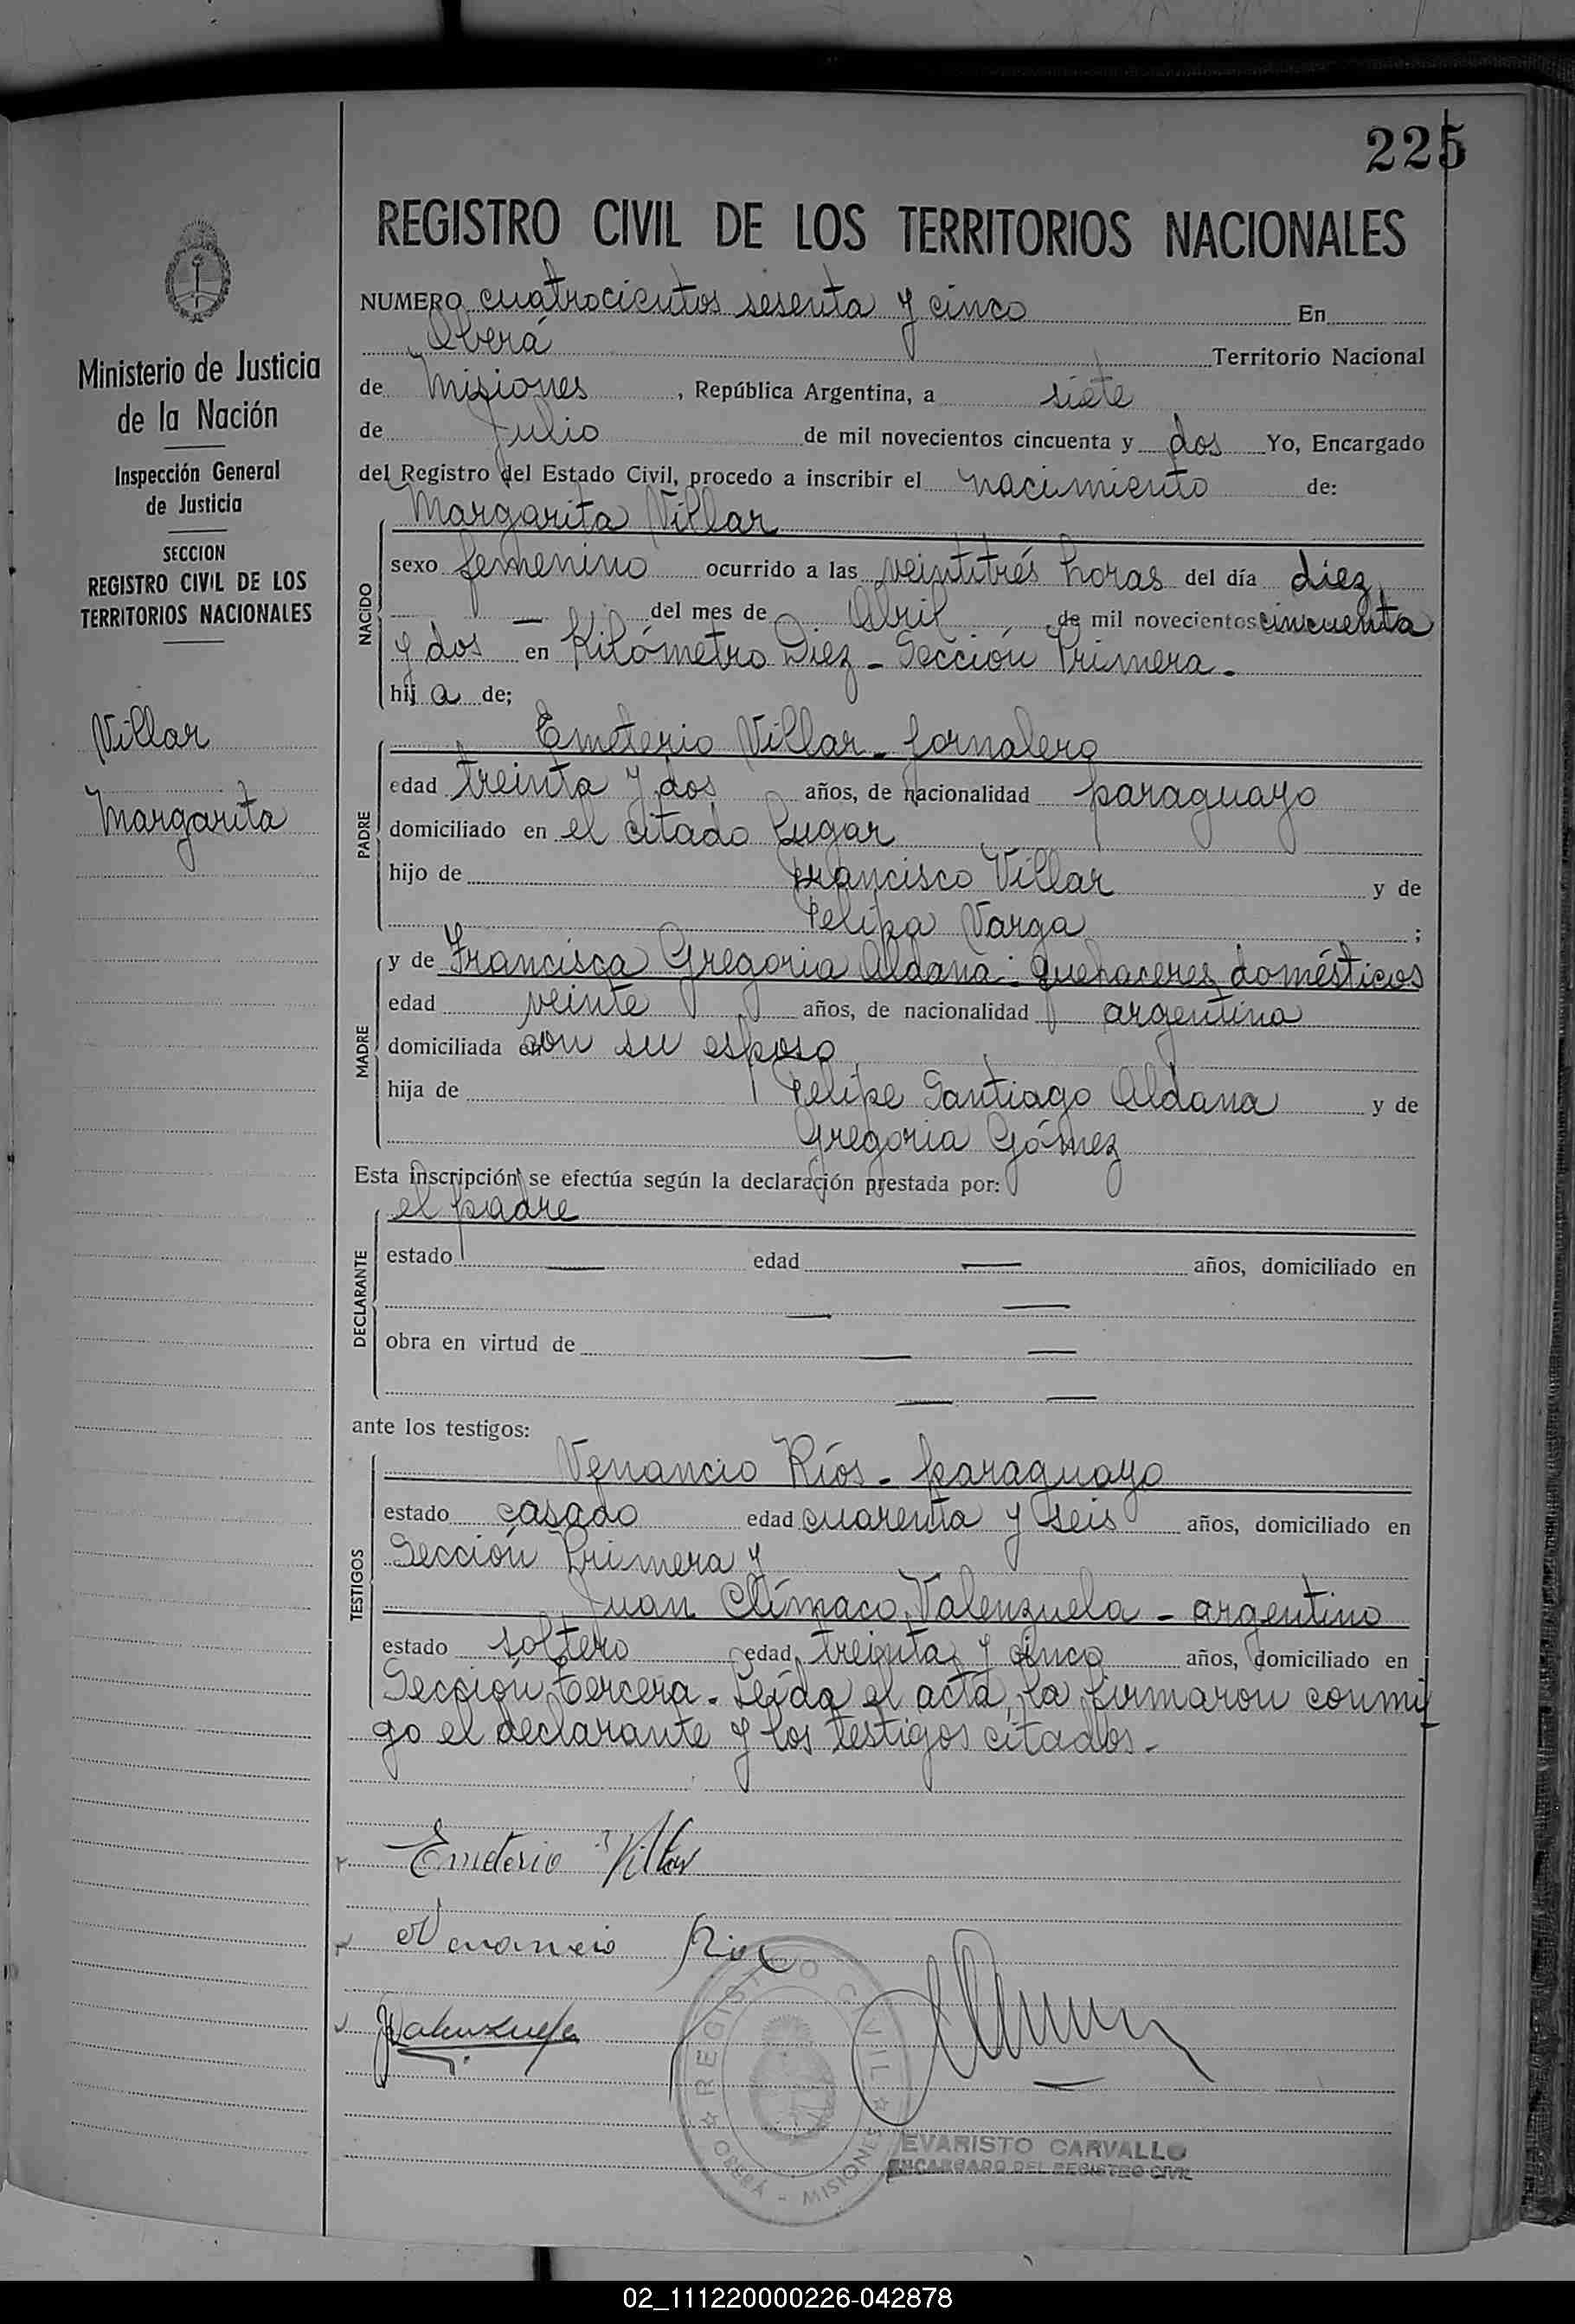 225
REGISTRO CIVIL DE LOS TERRITORIOS NACIONALES
Ministerio de Justicia
de la Nación
Inspección General
de Justicia
SECCION
REGISTRO CIVIL DE LOS
TERRITORIOS NACIONALES
Villar
Margarita
NUMERO cuatrocientos sesenta y cinco En
Oberá Territorio Nacional
de Misiones, República Argentina, a siete
de Julio de mil novecientos cincuenta y dos Yo, Encargado
del Registro del Estado Civil, procedo a inscribir el nacimiento de:
NACIDO
Margarita Villar
sexo femenino ocurrido a las veintitrés horas del día diez
— del mes de Abril de mil novecientos cincuenta
y dos en Kilómetro Diez - Sección Primera.
hija de;
PADRE
Emeterio Villar - jornalero
edad treinta y dos años, de nacionalidad paraguayo
domiciliado en el citado lugar
hijo de Francisco Villar y de
Felipa Varga ;
MADRE
y de Francisca Gregoria Aldana - quehaceres domésticos
edad veinte años, de nacionalidad argentina
domiciliada en con su esposo
hija de Felipe Santiago Aldana y de
Gregoria Gómez
Esta inscripción se efectúa según la declaración prestada por:
DECLARANTE
el padre
estado — edad — años, domiciliado en
— —
obra en virtud de — —
— —
ante los testigos:
TESTIGOS
Venancio Ríos - paraguayo
estado casado edad cuarenta y seis años, domiciliado en
Sección Primera y
Juan Clímaco Valenzuela - argentino
estado soltero edad treinta y cinco años, domiciliado en
Sección tercera. Leída el acta, la firmaron conmi
go el declarante y los testigos citados.-
Emeterio Villar
Venancio Rios
JValenzuela
REGISTRO CIVIL
OBERÁ - MISIONES
EVARISTO CARVALLO
ENCARGADO DEL REGISTRO CIVIL
02_111220000226-042878